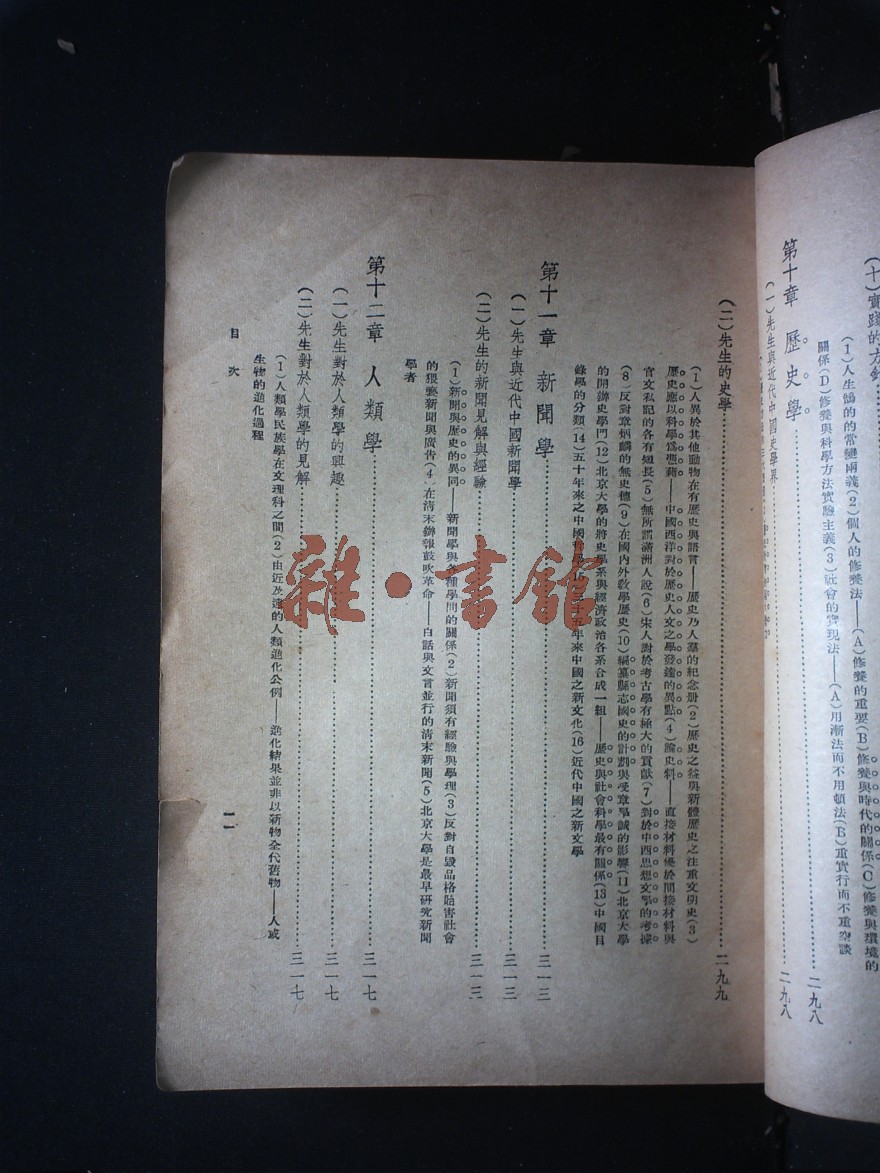 (十)實踐的方針
(1)人生鵠的的常變兩義(2)個人的修養法——(A)修養的重要(B)修養與時代的關係(C)修養與環境的
關係(D)修養與科學方法實驗主義(3)社會的實現法——(A)用漸法而不用頓法(B)重實行而不重空談
第十章 歷史學 二九八
(一)先生與近代中國史學界 二九八
(二)先生的史學 二九九
(1)人異於其他動物在有歷史與語言——歷史乃人羣的紀念册(2)歷史之益與新體歷史之注重文明史(3)
歷史應以科學爲憑藉——中國西洋對於歷史人文之學發達的異點(4)論史料——直接材料優於間接材料與
官文私記的各有短長(5)無所謂滿洲人說(6)宋人對於考古學有極大的貢獻(7)對於中西思想文學的考據
(8)反對章炳麟的無史德(9)在國內外敎學歷史(10)編纂縣志國史的計劃與受章學誠的影響(11)北京大學
的開辦史學門(12)北京大學的將史學系與經濟政治各系合成一組——歷史與社會科學最有關係(13)中國目
錄學的分類(14)五十年來之中國哲學(15)三十五年來中國之新文化(16)近代中國之新文學
第十一章 新聞學 三一三
(一)先生與近代中國新聞學 三一三
(二)先生的新聞見解與經驗 三一三
(1)新聞與歷史的異同——新聞學與各種學問的關係(2)新聞須有經驗與學理(3)反對自毀品格貽害社會
的猥褻新聞與廣告(4)在清末辦報鼓吹革命——白話與文言並行的清末新聞(5)北京大學是最早研究新聞
學者
第十二章 人類學 三一七
(一)先生對於人類學的興趣 三一七
(二)先生對於人類學的見解 三一七
(1)人類學民族學在文理科之間(2)由近及遠的人類進化公例——進化結果並非以新物全代舊物——人或
生物的進化過程
目次 一一
雜·書館